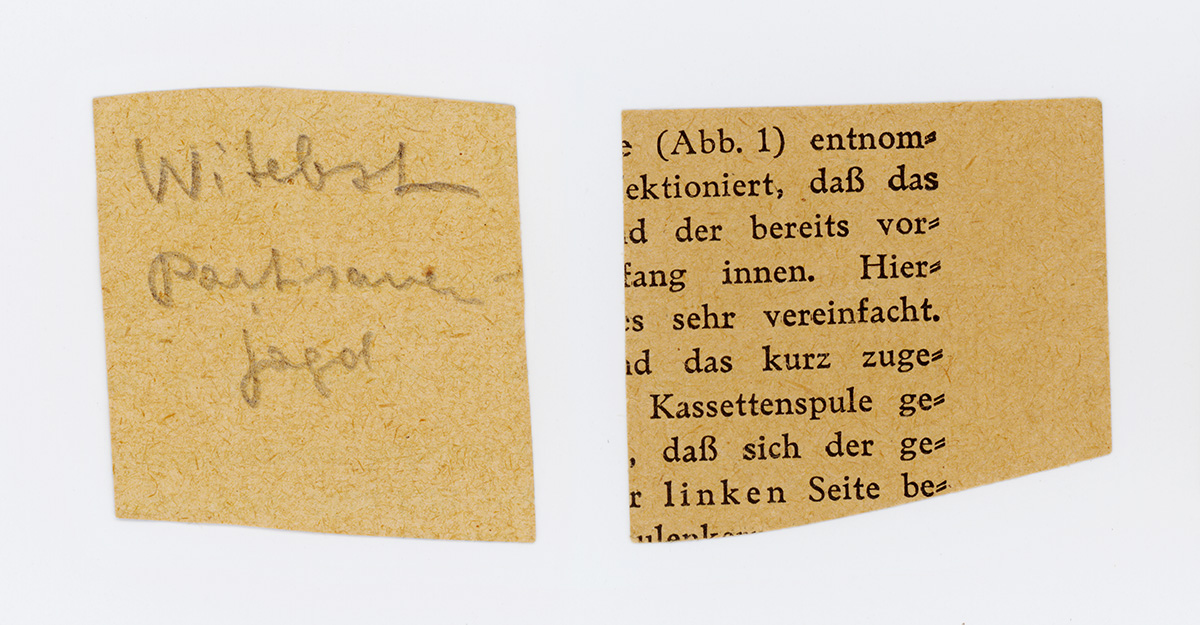 Witebsk
Partisanen-
jagd
e (Abb. 1) entnom⸗
ektioniert, daß das
d der bereits vor⸗
fang innen. Hier⸗
es sehr vereinfacht.
nd das kurz zuge⸗
Kassettenspule ge⸗
, daß sich der ge⸗
r linken Seite be⸗